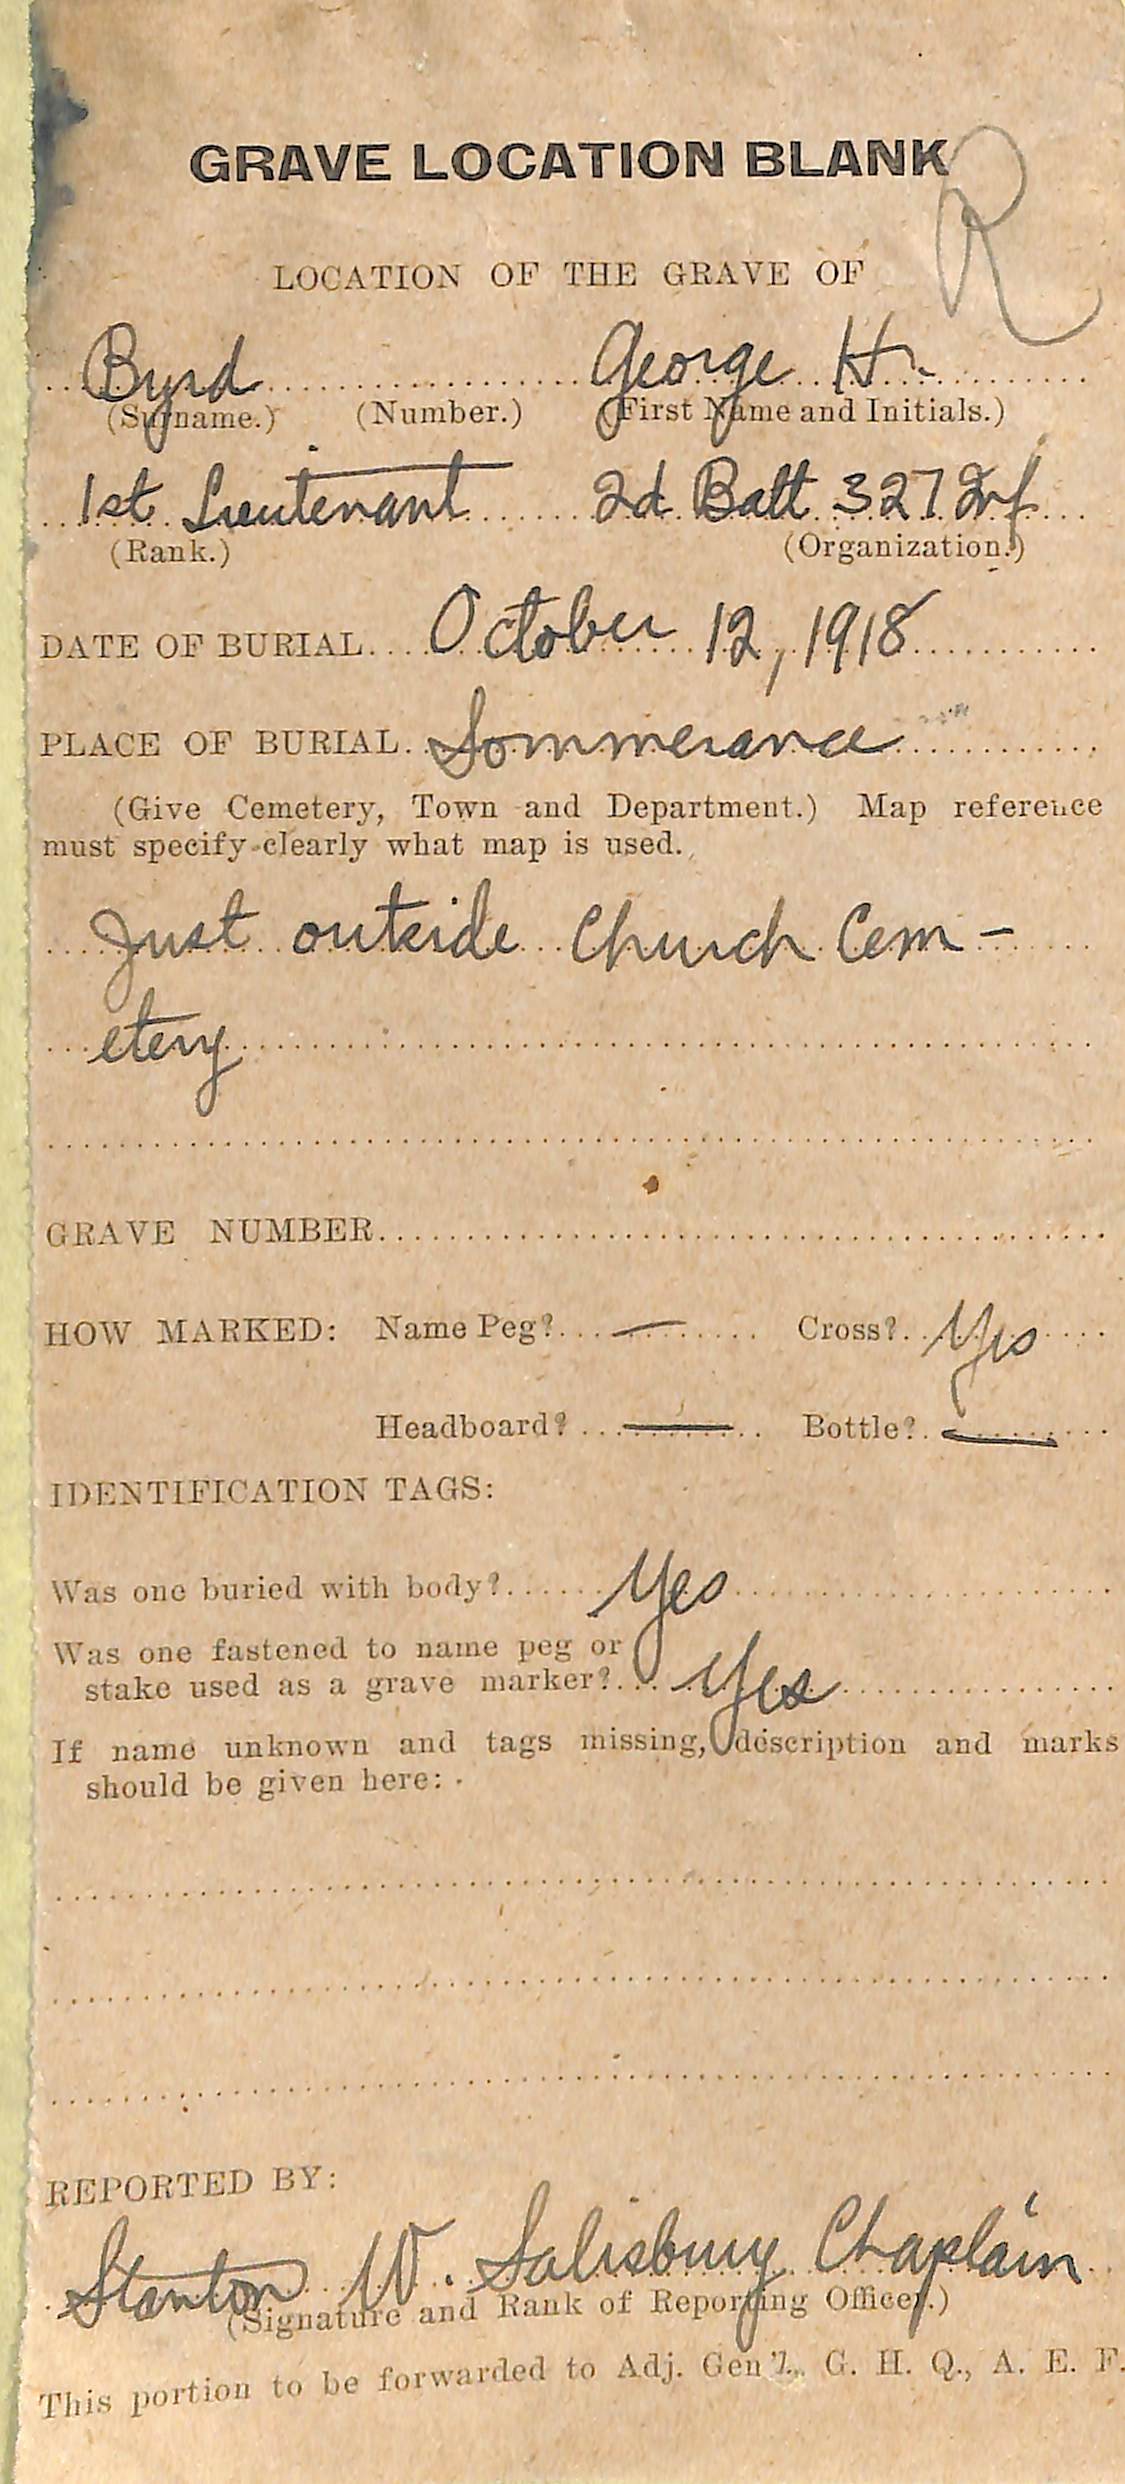 GRAVE LOCATION BLANK
R
LOCATION OF THE GRAVE OF
Byrd George H.
(Surname.) (Number.) (First Name and Initials.)
1st Lieutenant 2d Batt 327 Inf
(Rank.) (Organization.)
DATE OF BURIAL.... October 12, 1918
PLACE OF BURIAL. Sommerance
(Give Cemetery, Town and Department.) Map reference
must specify clearly what map is used.
Just outside Church Cem-
etery
GRAVE NUMBER
HOW MARKED: Name Peg? — Cross? Yes
Headboard? — Bottle? —
IDENTIFICATION TAGS:
Was one buried with body? Yes
Was one fastened to name peg or
stake used as a grave marker? Yes
If name unknown and tags missing, description and marks
should be given here:
REPORTED BY:
Stanton W. Salisbury Chaplain
(Signature and Rank of Reporting Officer.)
This portion to be forwarded to Adj. Gen'l., G. H. Q., A. E. F.